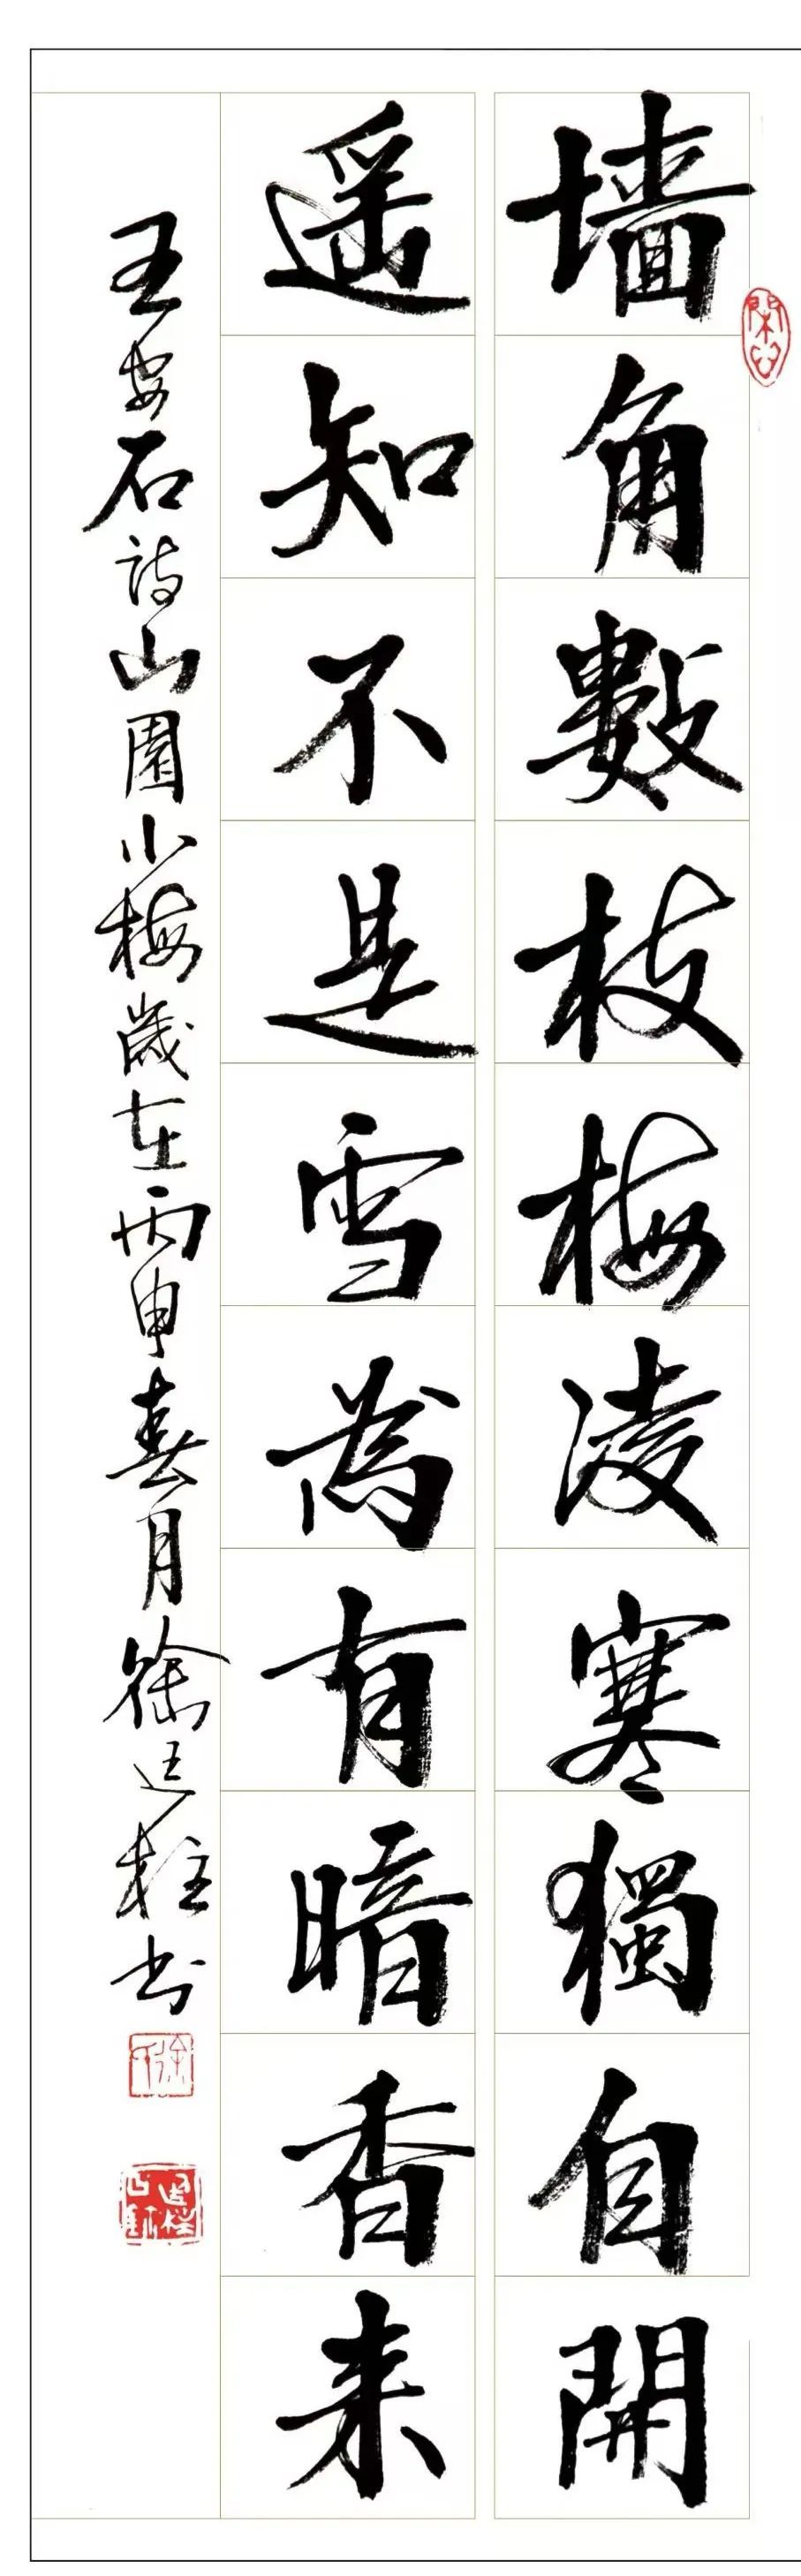 墙角數枝梅凌寒獨自開
遥知不是雪為有暗香来
王安石詩山園小梅歲在丙申春月徐廷柱书